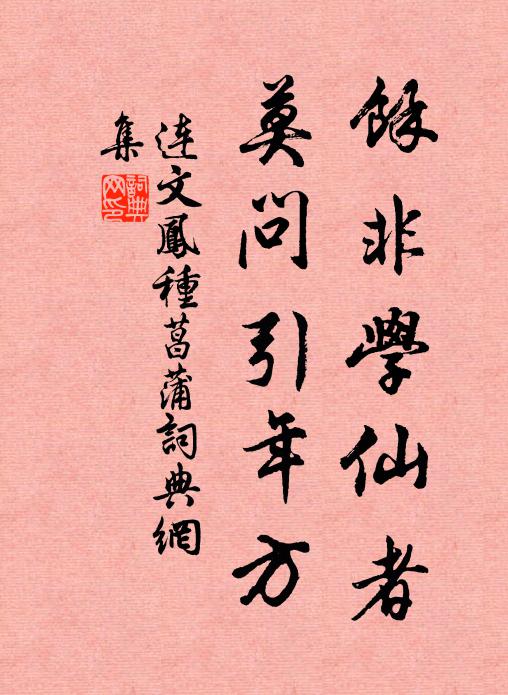 餘非學仙者
莫問引年方
連文鳳種菖蒲詞典網
集
詞典
网印